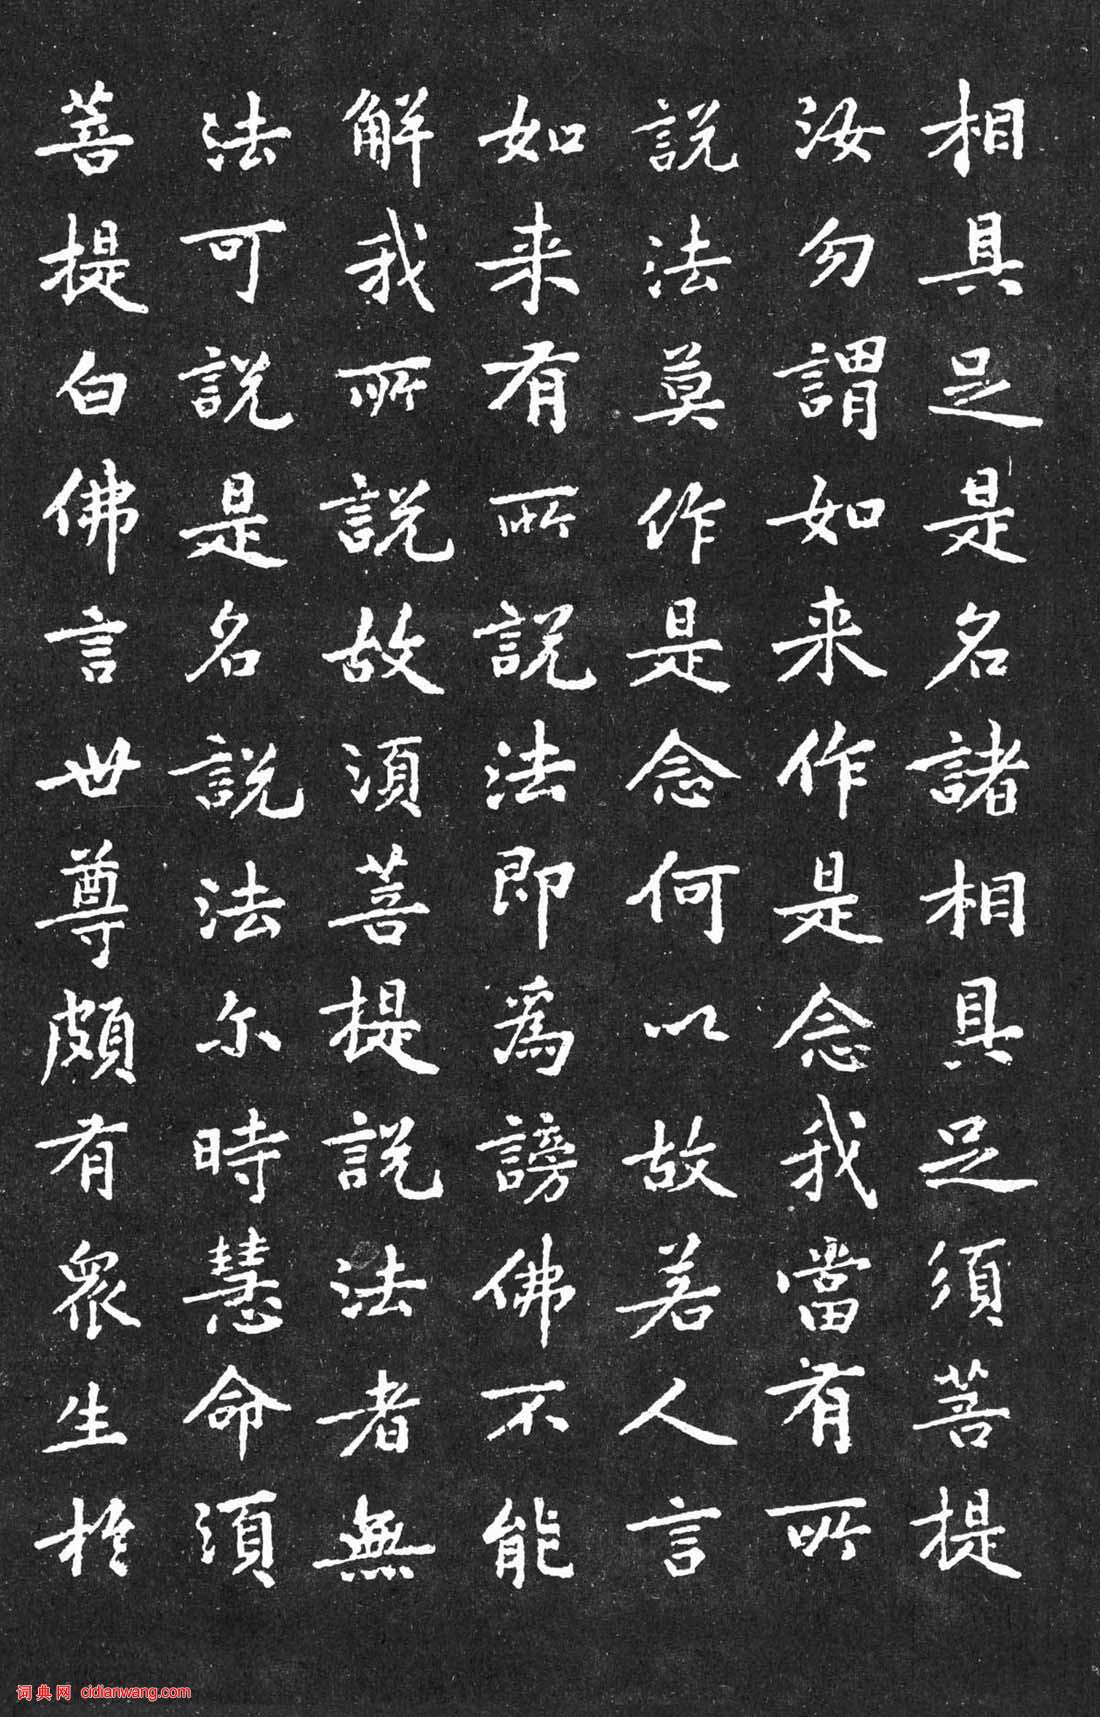 相具足是名諸相具足須菩提
汝勿謂如来作是念我當有所
說法莫作是念何以故若人言
如来有所說法即為謗佛不能
解我所說故須菩提說法者無
法可說是名說法尔時慧命須
菩提白佛言世尊頗有衆生於
词典网 cidianwang.com